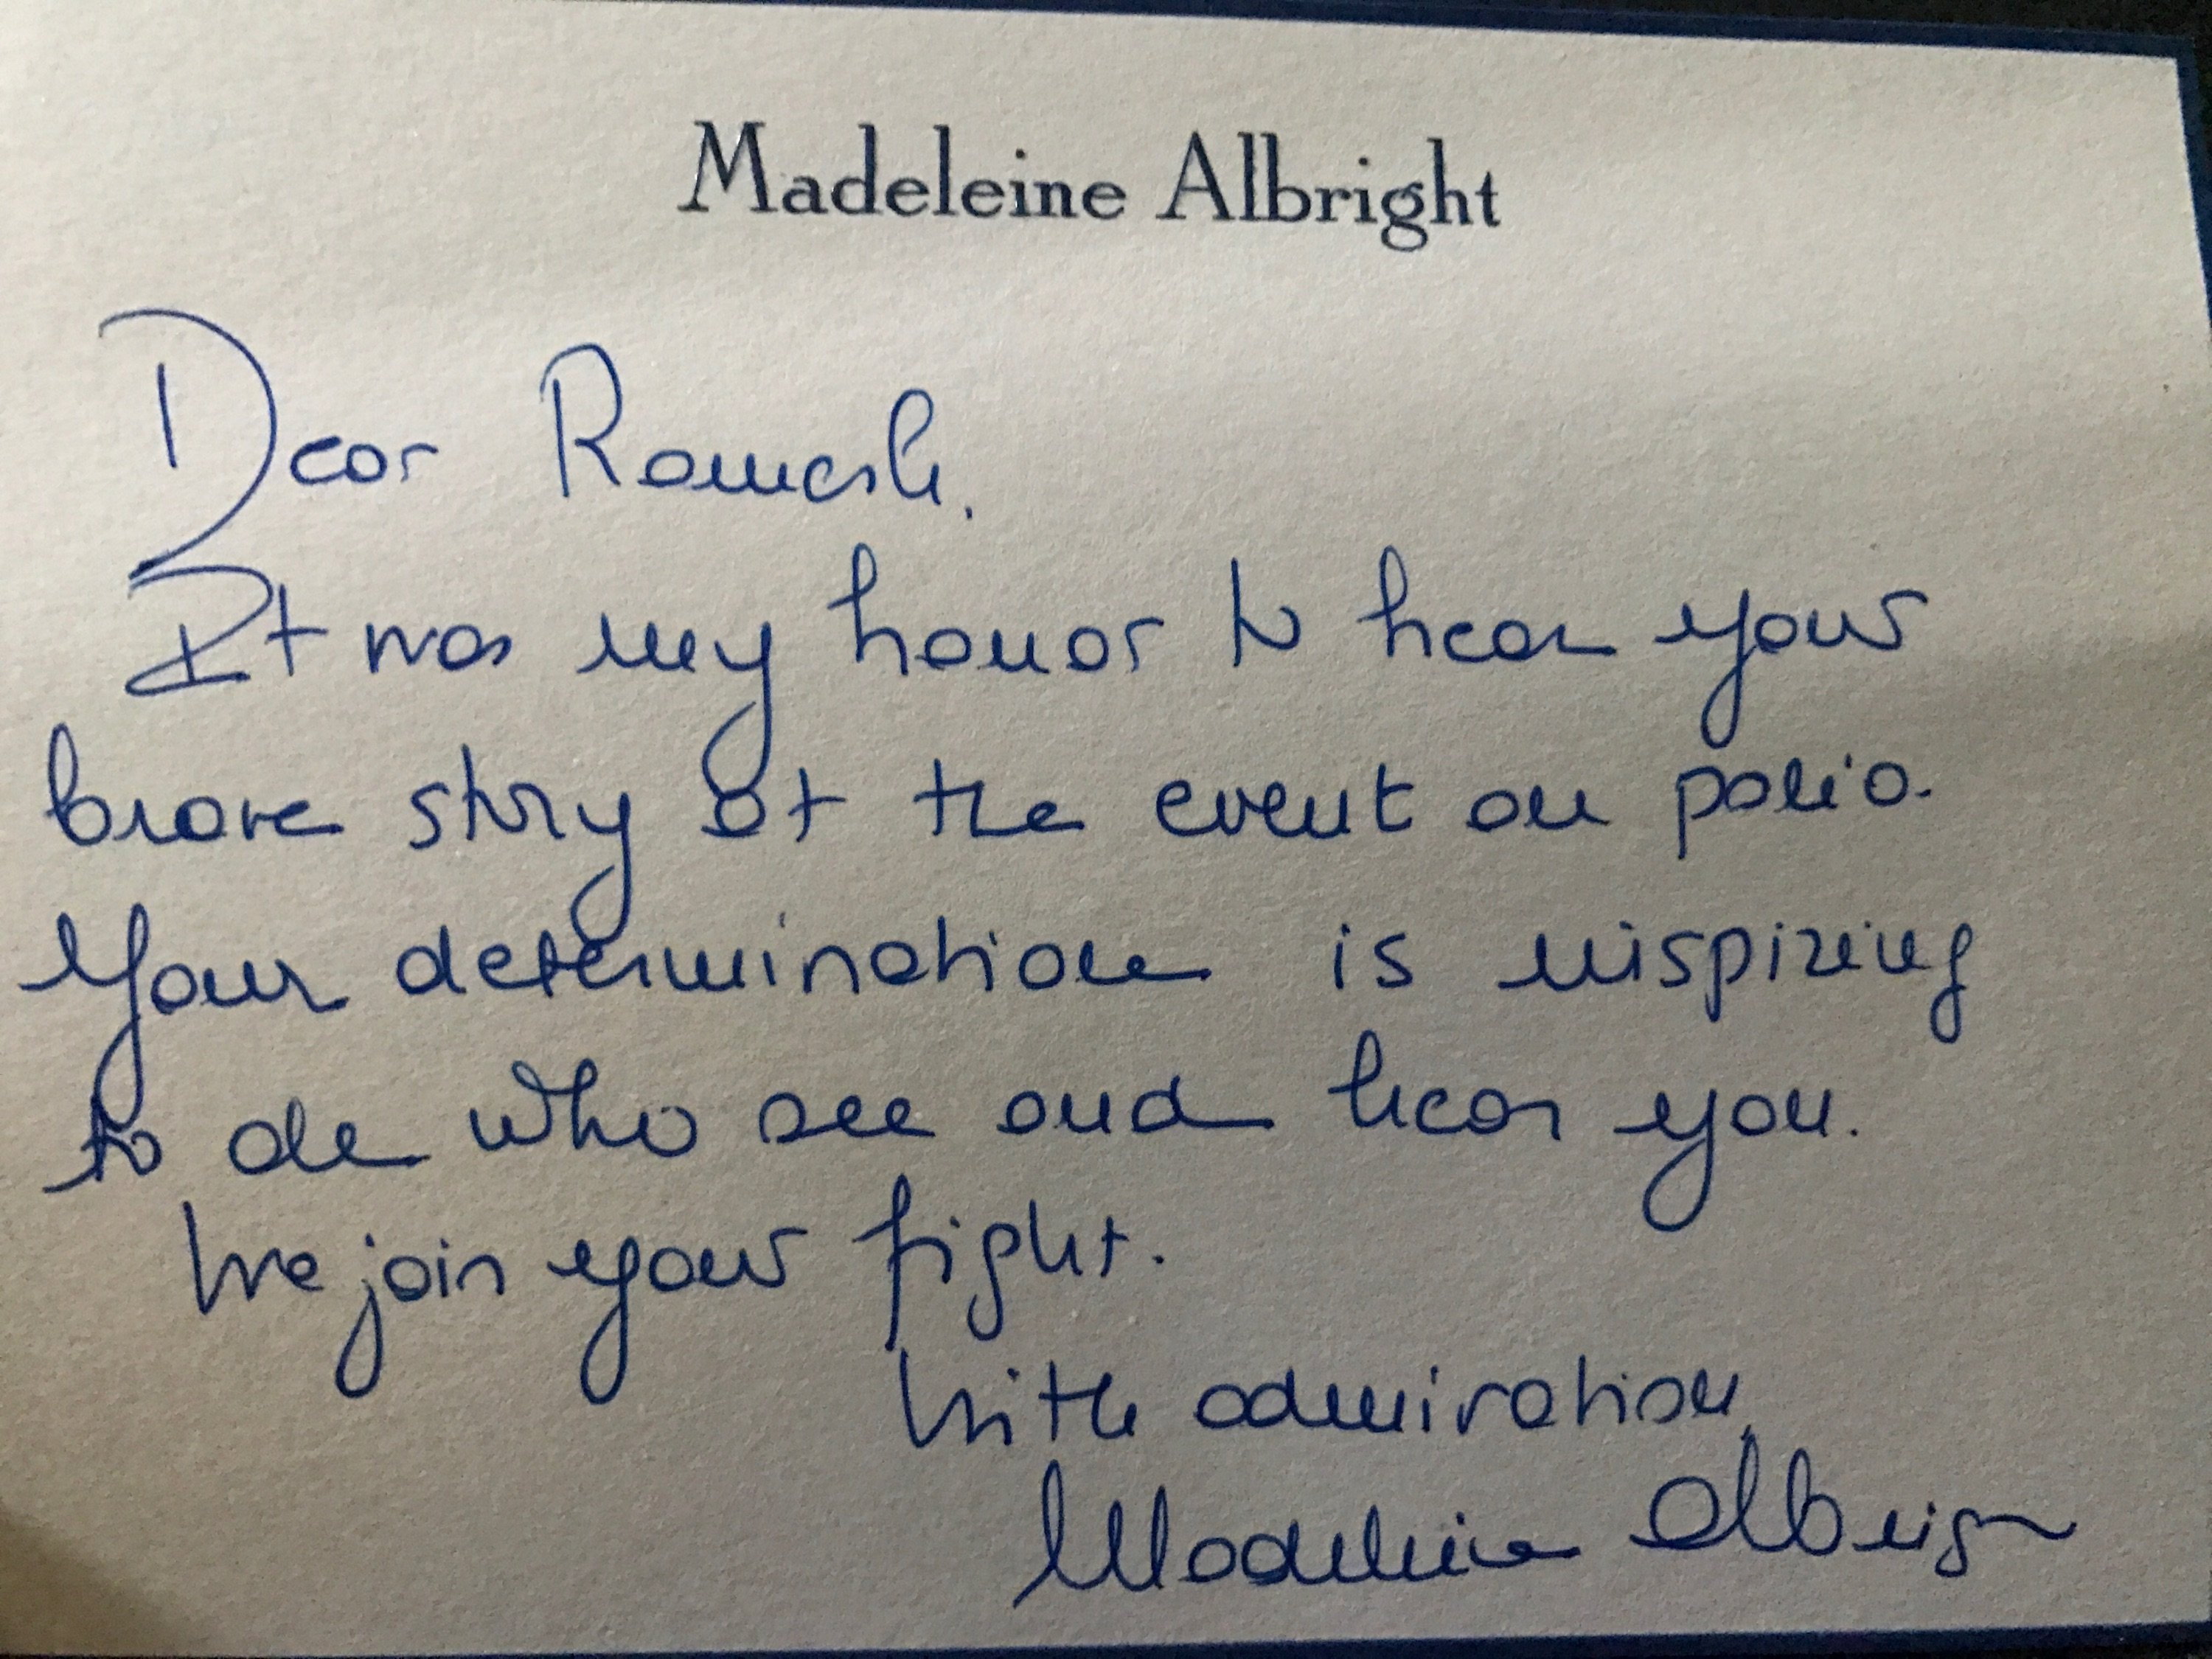 Madeleine Albright
Dear Ramesh,
It was my honor to hear your
brave story at the event on polio.
Your determination is inspiring
to all who see and hear you.
We join your fight.
With admiration,
Madeleine Albright